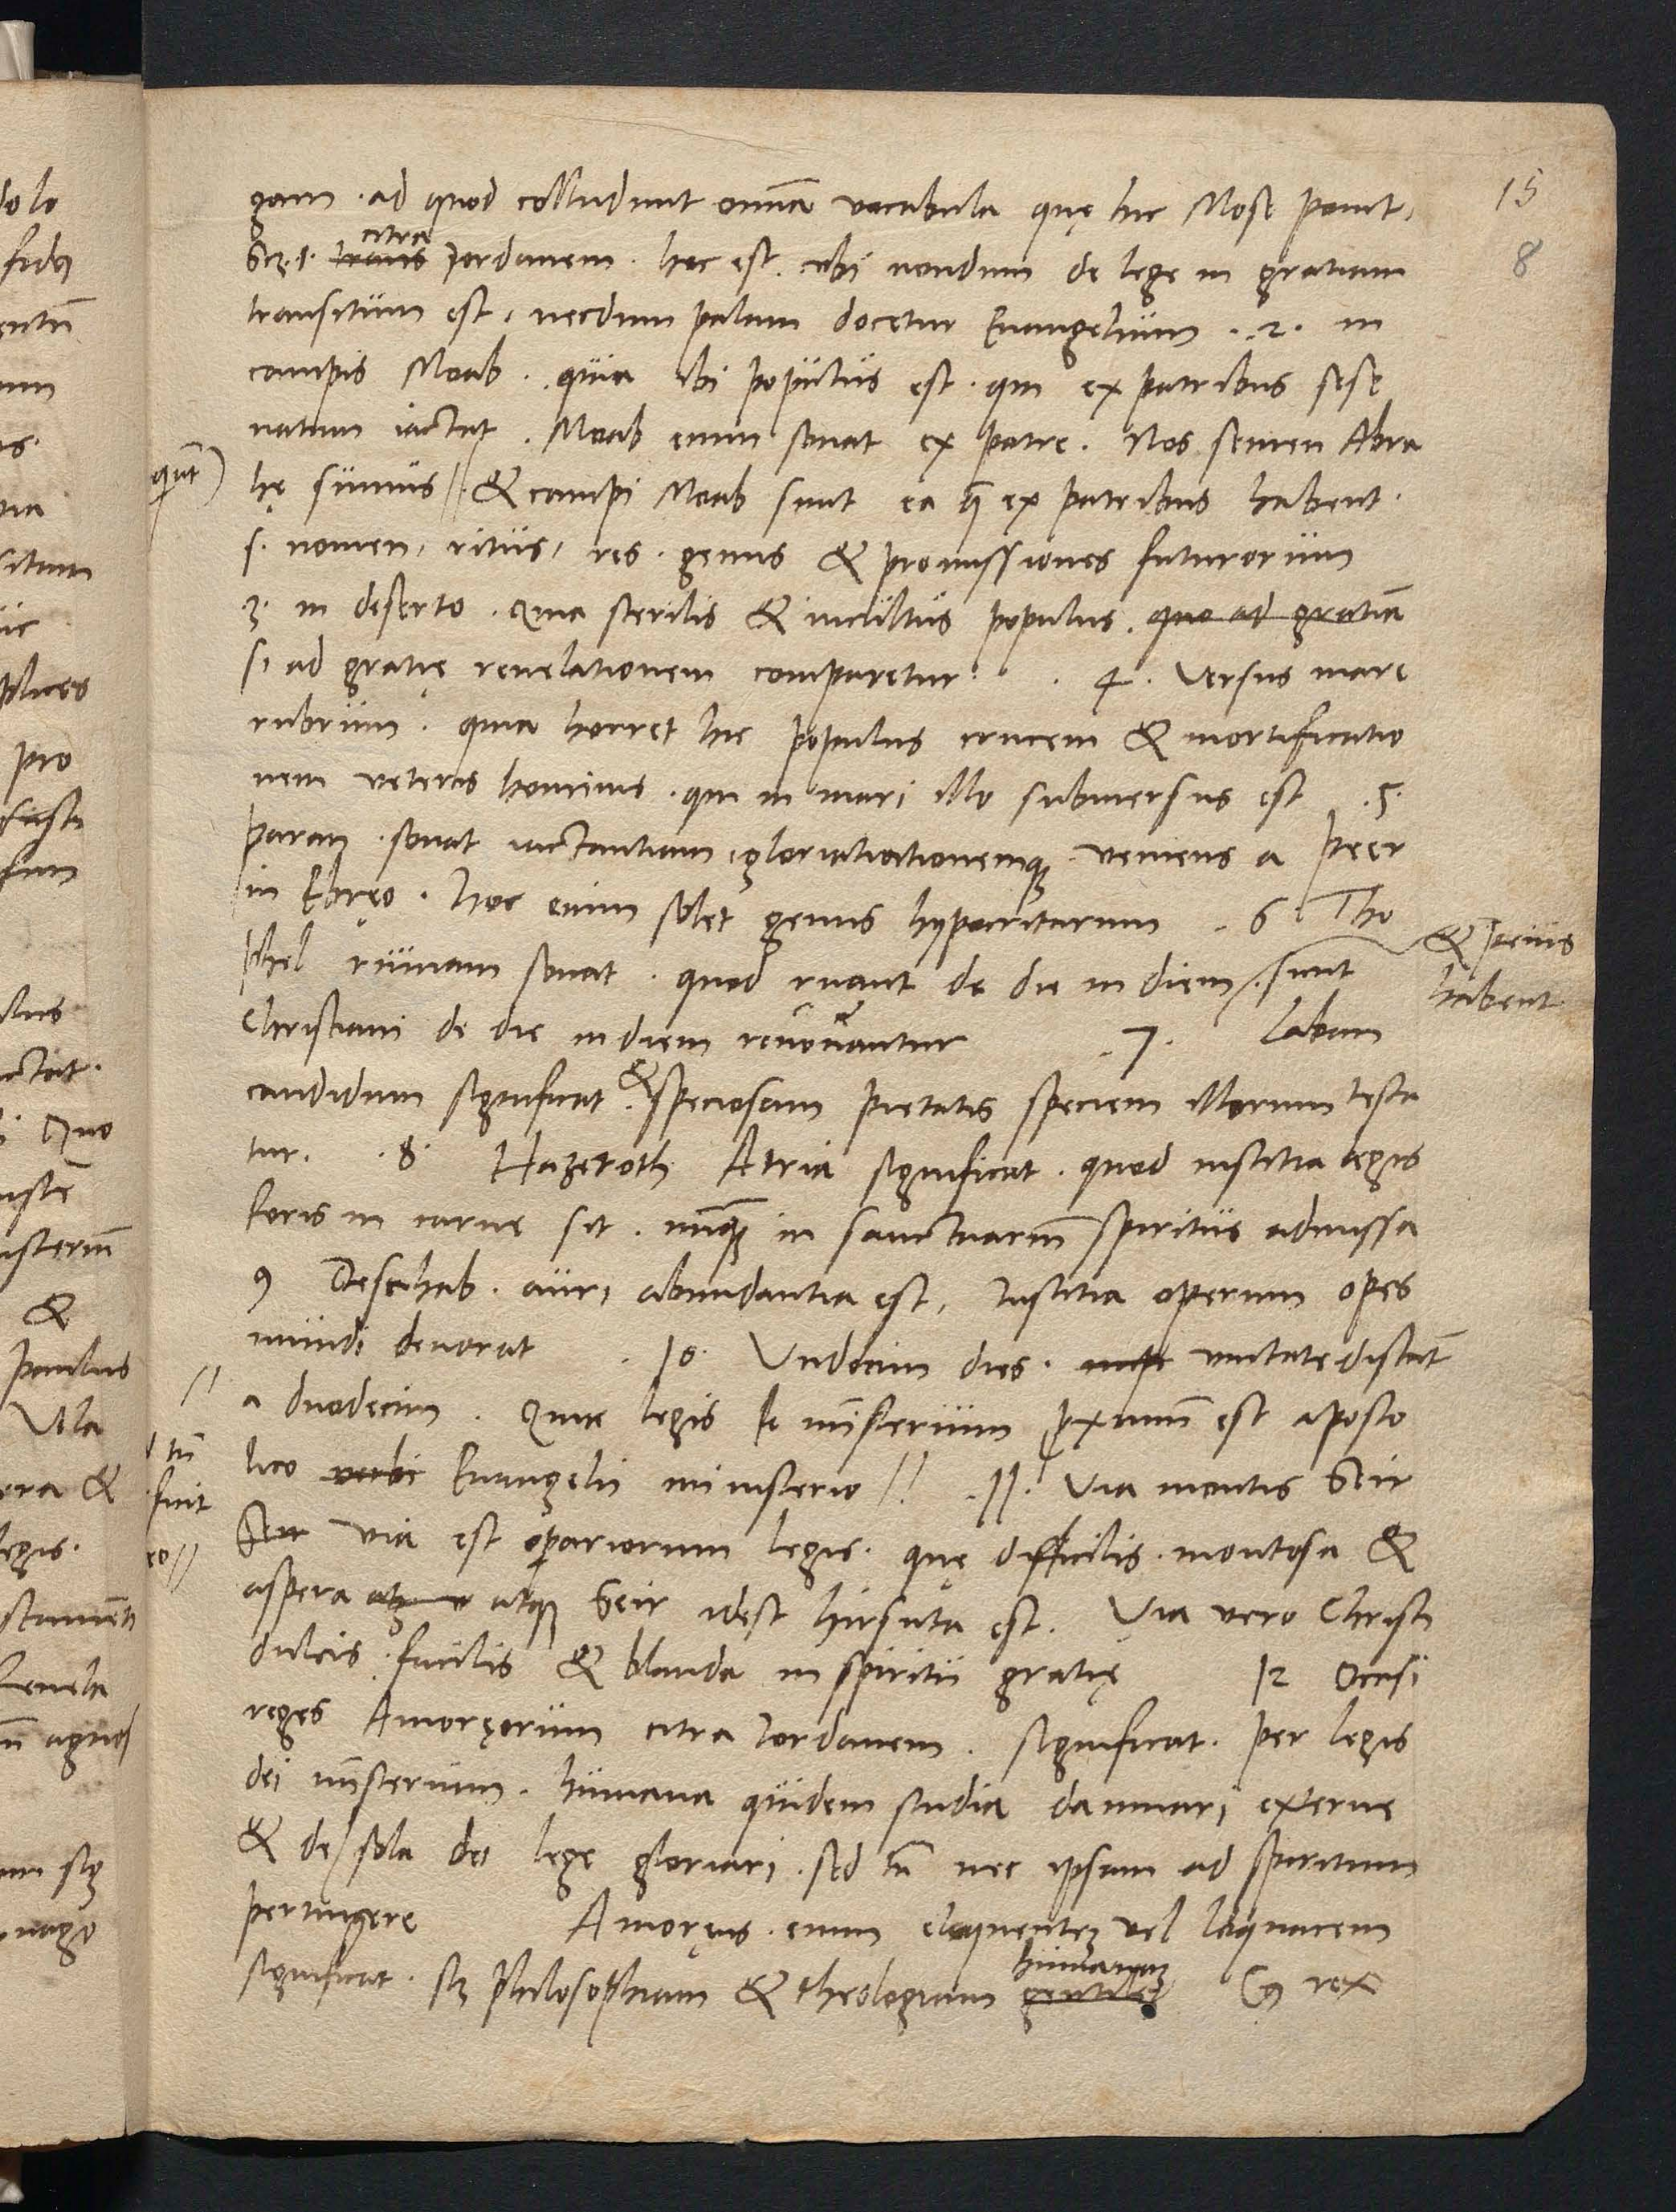 15
8
gam . ad quod colludunt omnia vocabula quę hic Mose ponit,
Scz .1. trans citra Jordanem . hoc est . ubi nondum de lege in gratiam
transitum est, necdum palam docetur Euangelium . .2. in
campis Moab . quia ibi populus est . qui ex patribus sese
natum iactat . Moab enim sonat ex patre . Nos semen Abra
hę sumus // & campi Moab sunt ea quę ex patribus habent .
s. nomen, ritus, res . genus & promissiones futurorum
3. in deserto . Quia sterilis & incultus populus . quo ad gratiā
si ad gratię reuelationem comparetur . . 4 . Versus mare
rubrum . quia horret hic populus crucem & mortificatio
nem veteris hominis . qui in mari illo submersus est .5.
paran . sonat iactantiam gloriationemque veniens a peer
in Ebręo . Hoc enim solet genus hypocritarum . 6 Tho
phel ruinam sonat . quod ruant de die in diem . sicut
& peius
habent
Christiani de die in diem renouantur .7. Laban
candidum significat . & speciosam pietatis speciem illorum testa
tur . .8. Hazeroth Atria significat . quod iustitia legis
foris in carne sit . nunquam in sanctuarium spiritus admissa
9 Desahab . auri abundantia est, Iustitia operum opes
mundi deuorat . 10. Undecim dies . unitate distāt
a duodecim . Quia legis ministerium proximum est aposto
lico verbi Euangelii ministerio // .11. Via montis Seir
Seir via est operariorum legis . quę difficilis . montosa &
aspera atque Seir idest hirsuta est . Via vero Christi
dulcis . facilis & blanda in spiritu gratię 12 Occisi
reges Amoręorum citra Iordanem . significat . per legis
dei ministerium . humana quidem studia damnari externe
& de sola dei lege gloriari . sed tn̄ nec ipsam ad spiritum
pertingere Amoręus . enim eloquentem vel loquacem
significat . scz philosophiam & theologiam gentiles humanam Og rex